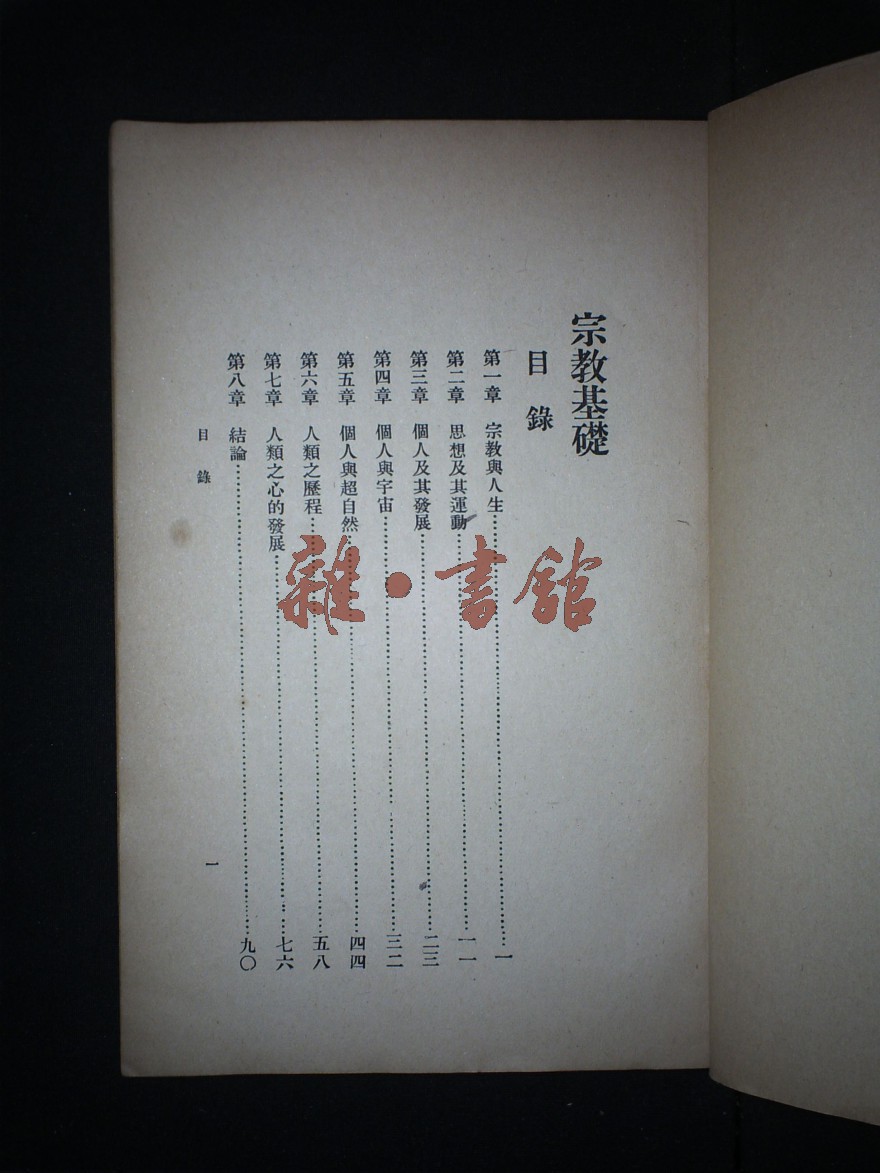 宗教基礎
目錄
第一章 宗教與人生……一
第二章 思想及其運動……一一
第三章 個人及其發展……二三
第四章 個人與宇宙……三二
第五章 個人與超自然……四四
第六章 人類之歷程……五八
第七章 人類之心的發展……七六
第八章 結論……九〇
目錄 一
雜·書館